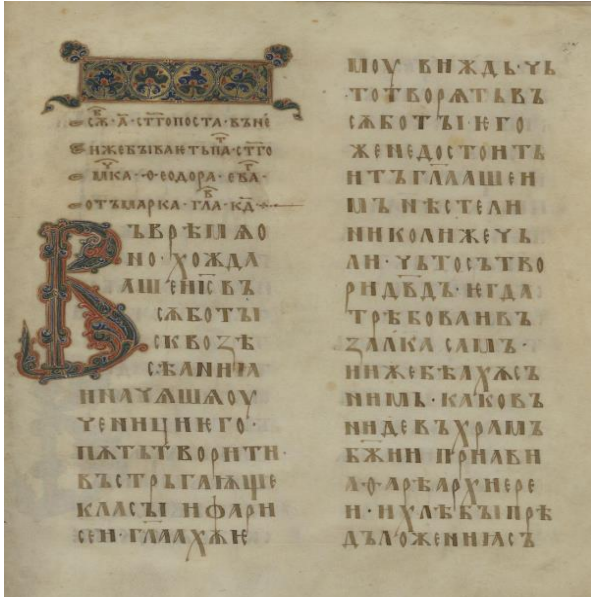 сѫ҃·а҃·ст҃гопоста·въне
вн҄жебꙑваѥтьпа·ст҃го
мч҃ка·ѳеодора·ев҃а·
отъмарка·гла·к҃д
Въврѣмѧо
но·хождⷶ
аше·іс҃въ
сѫботꙑ
сквозѣ
сѣаниꙗ
иначѧшѧоу
ченициѥго·
пѫтьтворити·
въстръгаѭще
класꙑ·ифари
сеи·гл҃аахѫѥ
моу виждь·чь
тотворѧтьвъ
сѫботꙑ·ѥго
женедостоить
итъгл҃аашеи
мъ нѣстели
николижечь
ли·чьтосътво
ридв҃дъ·ѥгда
трѣбоваивъ
залкасамъ·
иижебѣахѫсъ
нимь·каковъ
нидевъхрамъ
бж҃ии приави
аѳарѣархиере
и·ихлѣбꙑпрѣ
дъложениꙗсъ